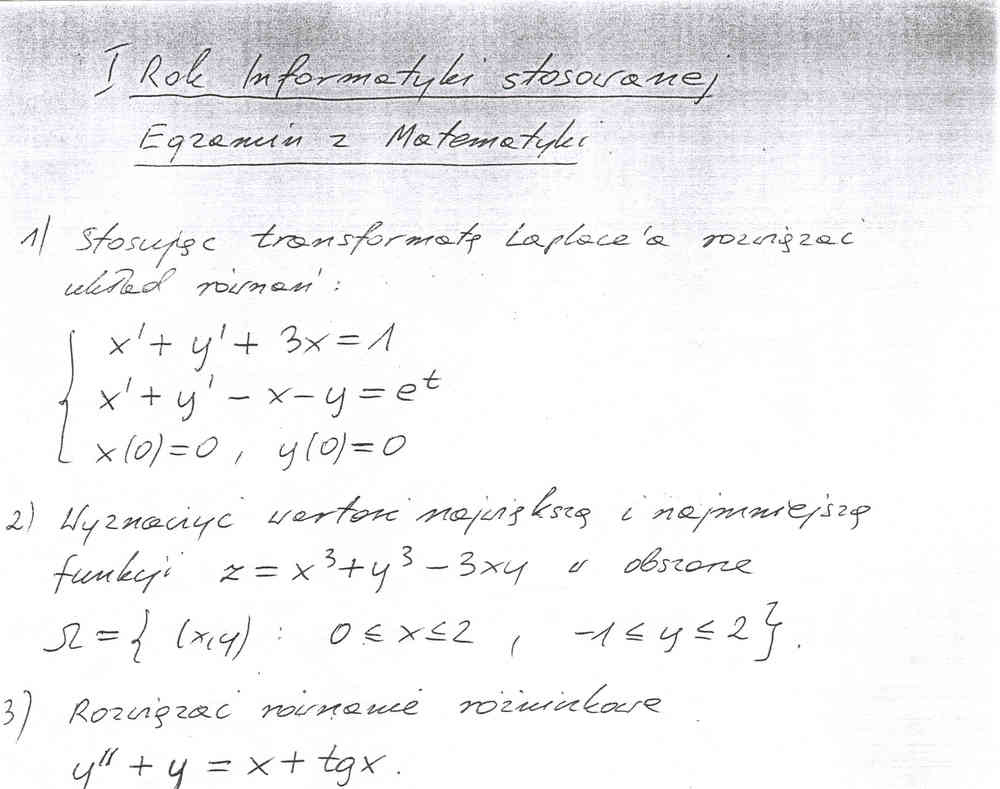 I Rok Informatyki stosowanej
Egzamin z Matematyki
1) Stosując transformatę Laplace'a rozwiązać
układ równań:
x' + y' + 3x = 1
x' + y' - x - y = e^t
x(0) = 0, y(0) = 0
2) Wyznaczyć wartość największą i najmniejszą
funkcji z = x³ + y³ - 3xy w obszarze
Ω = { (x,y) : 0 ≤ x ≤ 2 , -1 ≤ y ≤ 2 }.
3) Rozwiązać równanie różniczkowe
y'' + y = x + tgx.